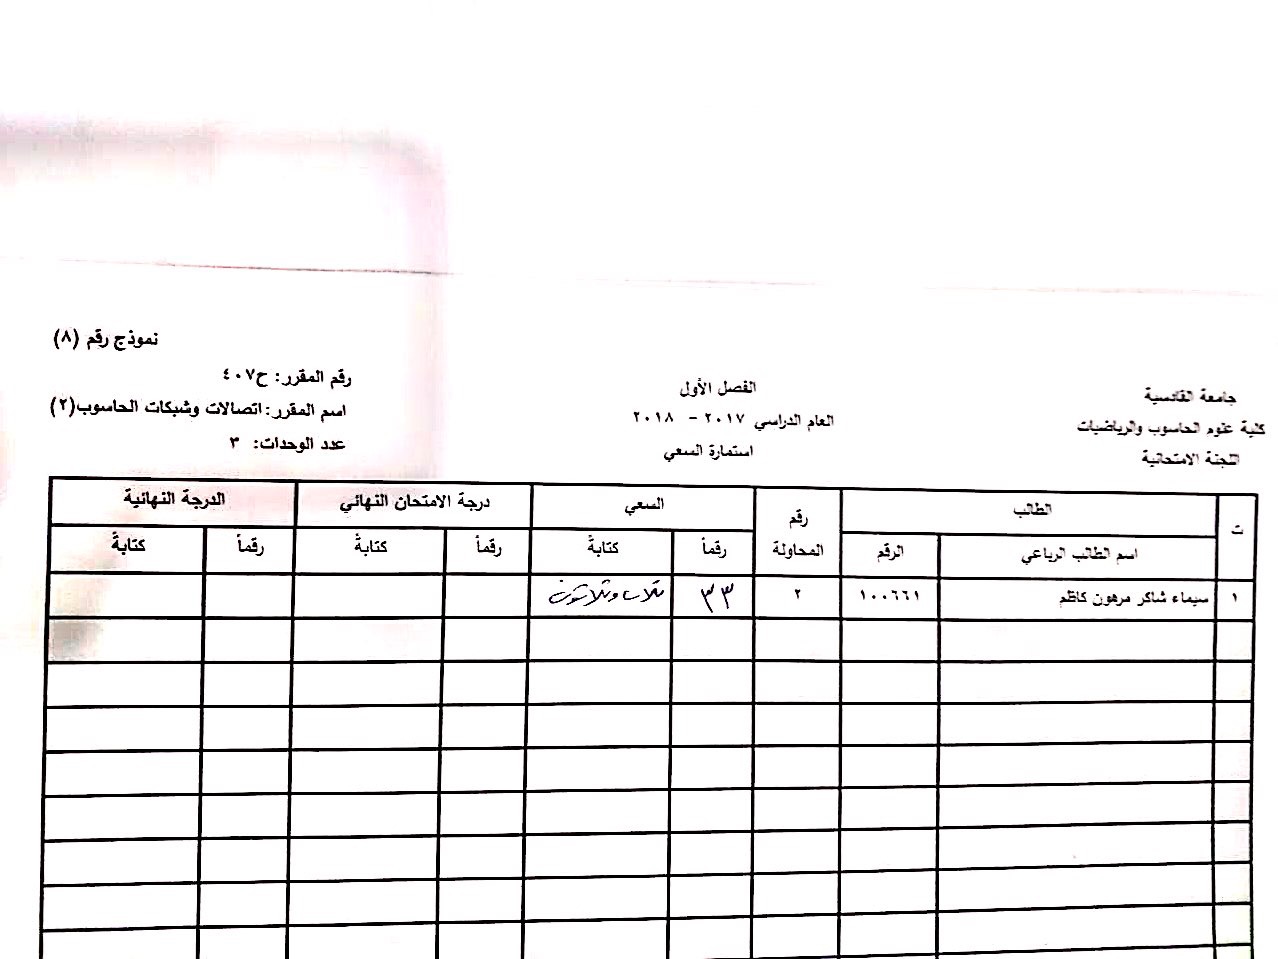 نموذج رقم (٨)
جامعة القادسية
كلية علوم الحاسوب والرياضيات
اللجنة الامتحانية
الفصل الأول
العام الدراسي ٢٠١٧ - ٢٠١٨
استمارة السعي
رقم المقرر: ح٤٠٧
اسم المقرر: اتصالات وشبكات الحاسوب(٢)
عدد الوحدات: ٣
ت الطالب رقم المحاولة السعي درجة الامتحان النهائي الدرجة النهائية
اسم الطالب الرباعي الرقم رقماً كتابةً رقماً كتابةً رقماً كتابةً
١ سيماء شاكر مرهون كاظم ١٠٠٦٦١ ٢ ٣٣ ثلاث وثلاثون